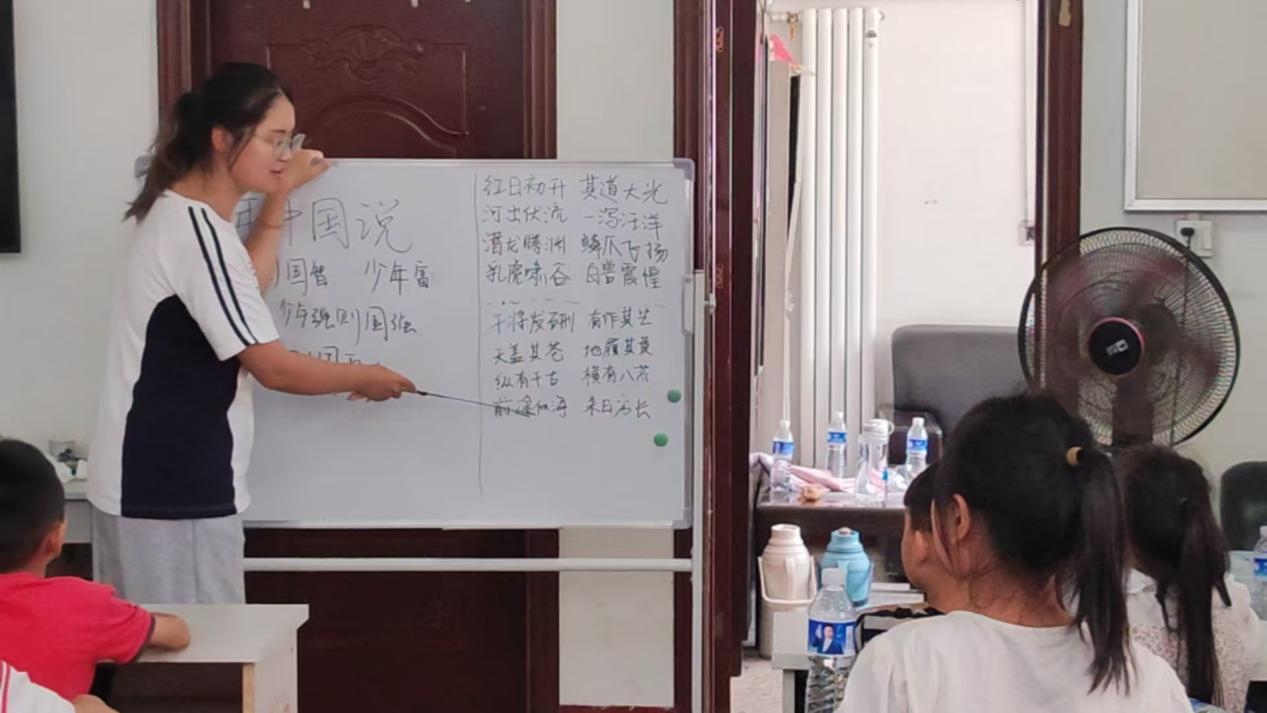 中国说
国智 少年富
少年强则国强
红日初升 其道大光
河出伏流 一泻汪洋
潜龙腾渊 鳞爪飞扬
乳虎啸谷 百兽震惶
干将发硎 有作其芒
天盖其苍 地履其黄
纵有千古 横有八荒
前途似海 来日方长